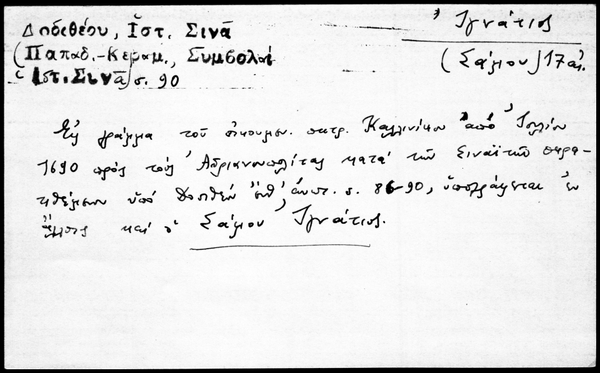 Δοσιθέου, Ἱστ. Σινᾶ
(Παπαδ.-Κεραμ., Συμβολαί
Ἱστ. Σινᾶ) σ. 90
Ἰγνάτιος
(Σάμου) 17 αἰ.
Εἰς γράμμα τοῦ οἰκουμεν. πατρ. Καλλινίκου ἀπό Ἰουλίου
1690 πρός τούς Ἀδριανουπολίτας κατά τῶν Σιναϊτῶν παρα-
τιθέμενον ὑπό Δοσιθέου ἐνθ' ἀνωτ. σ. 86-90, ὑπογράφεται ἐν
ἄλλοις καί ὁ Σάμου Ἰγνάτιος.